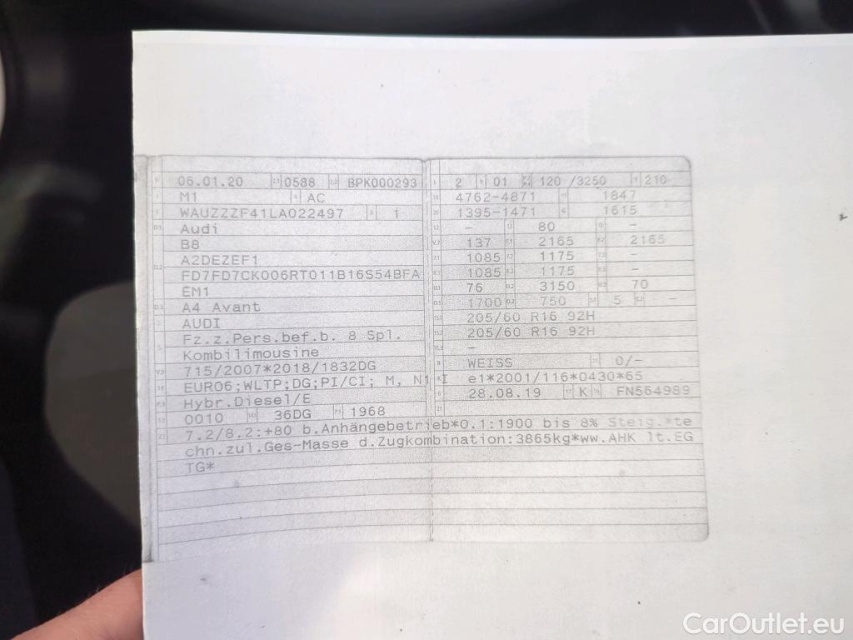 06.01.20 0588 BPK000293
M1 AC
WAUZZZF41LA022497 1
Audi
B8
A2DEZEF1
FD7FD7CK006RT011B16S54BFA
EM1
A4 Avant
AUDI
Fz.z.Pers.bef.b. 8 Spl.
Kombilimousine
715/2007*2018/1832DG
EURO6;WLTP;DG;PI/CI; M, N1 I
Hybr.Diesel/E
0010 36DG 1968
2 01 120 /3250 210
4762-4871 1847
1395-1471 1615
- 80 -
137 2165 2165
1085 1175 -
1085 1175 -
76 3150 70
1700 750 5 -
205/60 R16 92H
205/60 R16 92H
-
WEISS 0/-
e1*2001/116*0430*65
28.08.19 K FN554989
7.2/8.2:+80 b.Anhängebetrieb*0.1:1900 bis 8% Steig.*te
chn.zul.Ges-Masse d.Zugkombination:3865kg*ww.AHK lt.EG
TG*
CarOutlet.eu